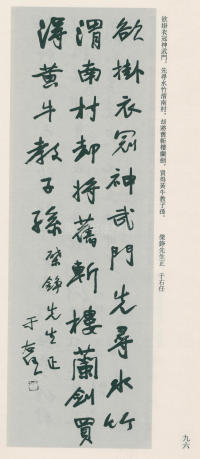 欲掛衣冠神武門，先尋水竹渭南村，却將舊斬樓蘭劍，買得黃牛教子孫。
榮錚先生正 于右任
欲掛衣冠神武門先尋水竹
渭南村却將舊斬樓蘭劍買
得黃牛教子孫 錚先生正
于右任
九六